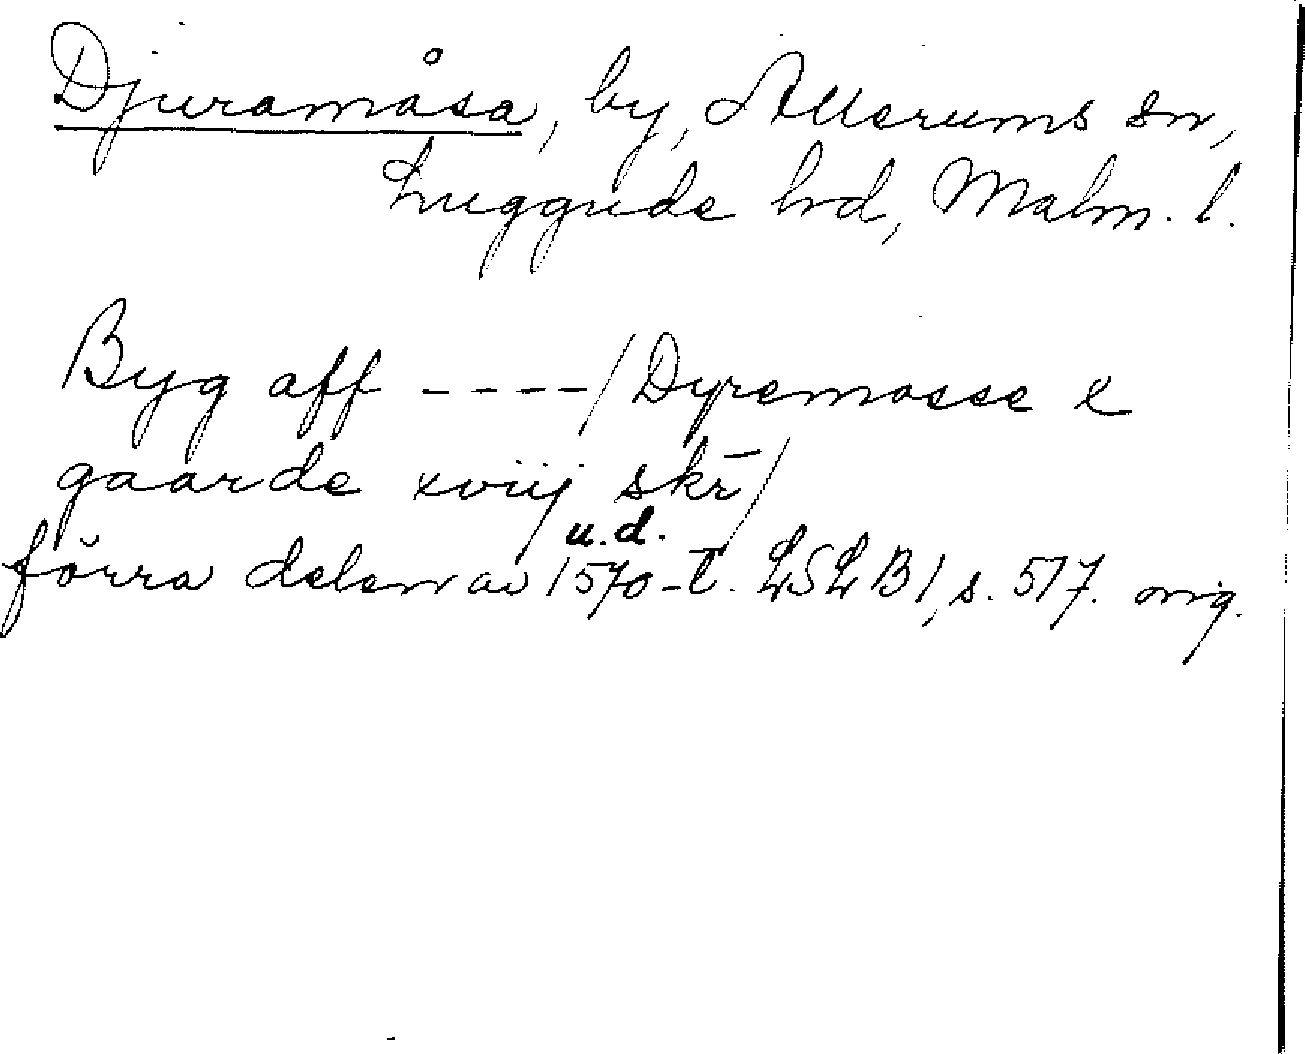 Djuramåsa, by, Allerums sn,
Luggude hrd, Malm. l.
Byg aff ----/ Dyremosse e
gaarde xviij skr̄/
u.d.
förra delen av 1570-t. LSLB1, s. 517. orig.